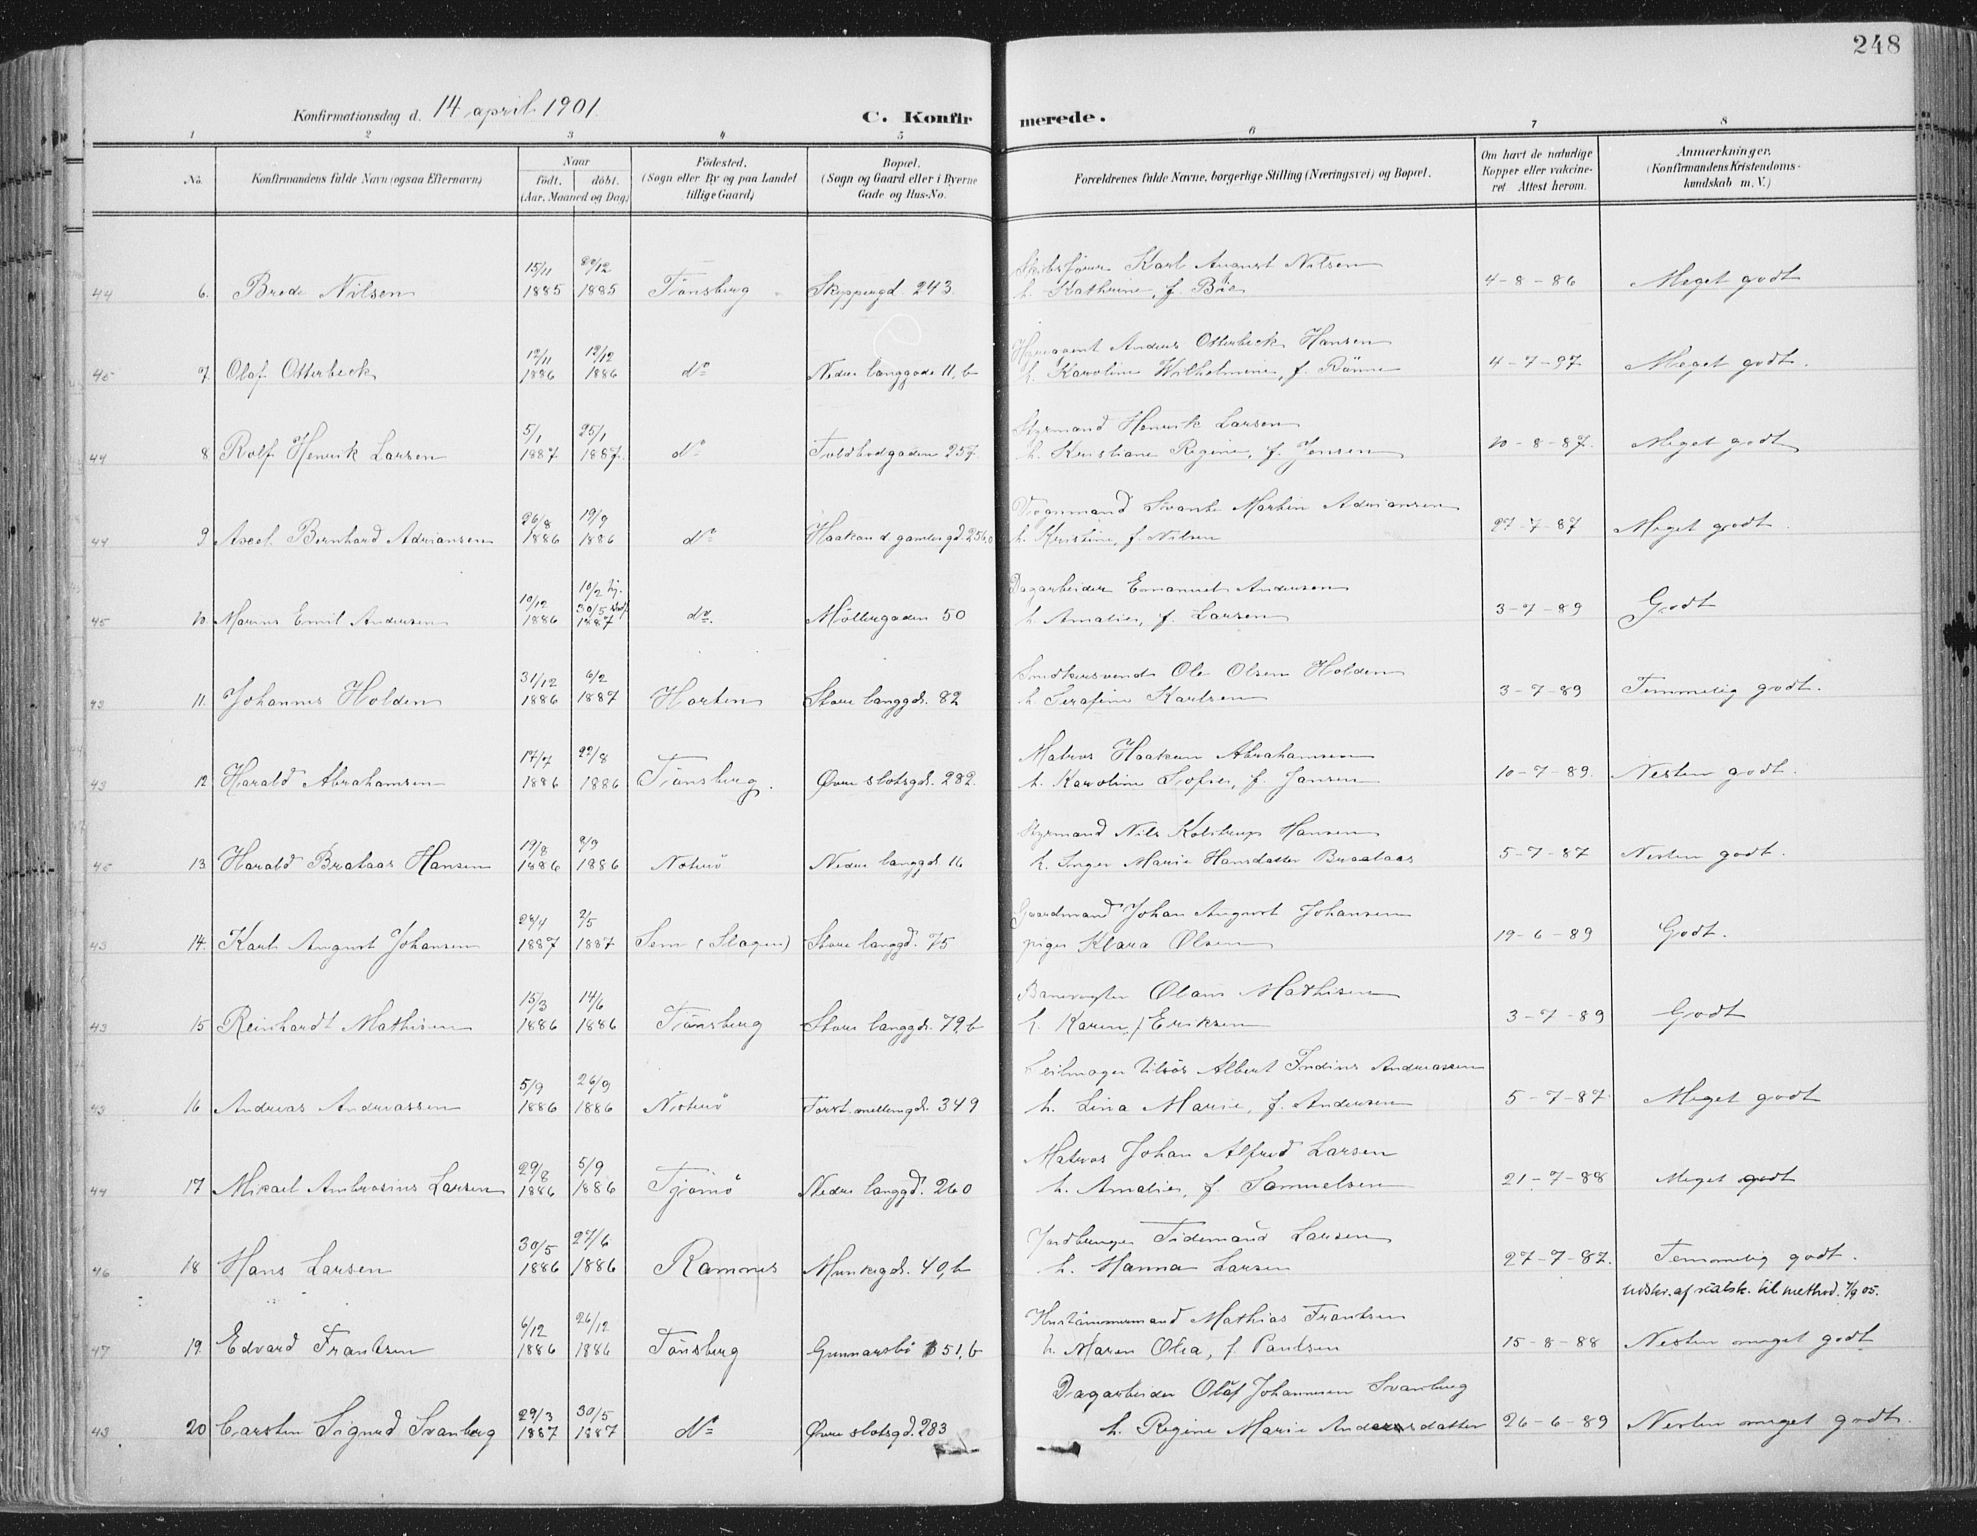 248
Konfirmationsdag d. 14 april 1901.
C. Konfirmerede.
1 2 3 4 5 6 7 8
No.
Konfirmandens fulde Navn (ogsaa Efternavn)
Naar
födt. döbt.
(Aar, Maaned og Dag)
Födested.
(Sogn eller By og paa Landet
tillige Gaard)
Bopæl.
(Sogn og Gaard eller i Byerne
Gade og Hus-No.
Forældrenes fulde Navne, borgerlige Stilling (Næringsvei) og Bopæl.
Om havt de naturlige
Kopper eller vakcine-
ret. Attest herom.
Anmærkninger.
(Konfirmandens Kristendoms-
kundskab m. V.)
15/11 29/12 Skibsfører Karl August Nilsen
44 6. Brede Nilsen 1885 1885 Tönsberg Skippergd 243 h. Kathrine, f. Böe 4-8-86 Meget godt
12/11 12/12 Andreas Otterbeck Hansen
45 7. Olaf Otterbeck 1886 1886 do Nedre langgade 11, b h. Karoline Wilhelmine, f. Rönne 4-7-97 Meget godt.
5/1 25/1 Styrmand Henrik Larsen
44 8 Rolf Henrik Larsen 1887 1887. do Toldbodgaden 257 h. Kristiane Regine, f. Jensen 10-8-87. Meget godt
26/8 19/9 Vognmand Svante Martin Adriansen
44 9 Axel Bernhard Adriansen 1886 1886 do Haakon d gamlesgd. 256, h. Kristine, f. Nilsen 27-7-87 Meget godt
10/12 10/2 hj. 30/5 Dagarbeider Emanuel Andersen
45 10. Marius Emil Andersen 1886 1887 do. Möllergaden 50 h. Amalie, f. Larsen 3-7-89 Godt
31/12 6/2 Smedkersvend Ole Olsen Holden
43 11. Johannes Holden 1886 1887 Horten Store langgd. 82 h. Serafine Karlsen 3-7-89 Temmelig godt.
17/7 22/8 Matros Haakon Abrahamsen
43 12 Harald Abrahamsen 1886 1886 Tönsberg. Øvre slotsgd. 282. h. Karoline Sofie, f. Jansen 10-7-89. Nesten godt.
19/8 9/9 Styrmand Nils Kolstrup Hansen
45 13. Harald Brataas Hansen 1886 1886 Nøterö Nedre langgd. 16 h. Inger Marie Hansdatter Braataas 5-7-87 Nesten godt.
24/4 2/5 Gaardmand Johan August Johansen
43 14. Karl August Johansen 1887 1887 Sem (Slagen) Store langgd. 75 pige Klara Olsen 19-6-89 Godt.
15/3 14/6 Banevogter Olaus Mathisen
43 15 Reinhardt Mathisen 1886 1886 Tönsberg Store langgd. 79, b h. Karen, f Eriksen 3-7-89 Godt
5/9 26/9 Seilmager Albert Andreassen
43 16 Andreas Andreassen 1886 1886 Nøterö 349 h. Lina Marie, f. Andersen 5-7-87 Meget godt
29/8 5/9 Matros Johan Alfred Larsen
44 17 Mikael Ambrosius Larsen 1886 1886 Tjömö Nedre langgd. 260 h. Amalie, f. Samuelsen 21-7-88 Meget godt
30/5 27/6 Jordbruger Tidemand Larsen
46 18 Hans Larsen 1886 1886 Ramnes Munkegd. 40, b h. Hanna Larsen 27-7-87. Temmelig godt.
Udskr. af statsk. til method. 7/9 05.
6/12 26/12 Hustömmermand Mathias Frantsen
47 19. Edvard Frantsen 1886 1886 Tönsberg Gunnarsbö 51, b h. Maren Olea, f. Paulsen 15-8-88 Nesten meget godt
29/3 30/5 Dagarbeider Olaf Johannesen Svanberg
43 20 Carsten Sigurd Svanberg 1887 1887 do Øvre slotsgd. 283 h. Regine Marie Andersdatter 26-6-89 Nesten meget godt.